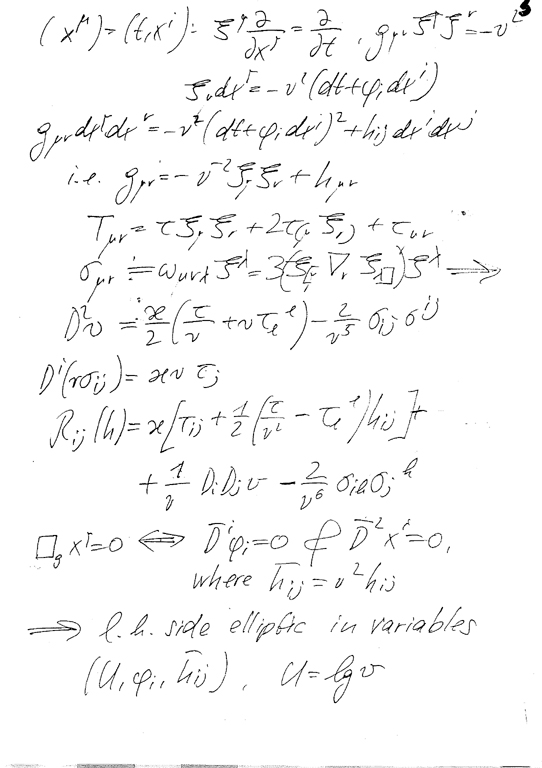 5
(x^μ) = (t, x^i): ξ^μ ∂/∂x^μ = ∂/∂t, g_μν ξ^μ ξ^ν = -v^2
ξ_μ dx^μ = -v^2 (dt + φ_i dx^i)
g_μν dx^μ dx^ν = -v^2 (dt + φ_i dx^i)^2 + h_ij dx^i dx^j
i.e. g_μν = -v^-2 ξ_μ ξ_ν + h_μν
T_μν = τ ξ_μ ξ_ν + 2τ_(μ ξ_ν) + τ_μν
σ_μν := ω_μνλ ξ^λ = 3(ξ_[μ ∇_ν ξ_λ]) ξ^λ ⟹
D^2 v = ϰ/2 (τ/v + v τ_l^l) - 2/v^5 σ_ij σ^ij
D^i (v σ_ij) = ϰ v τ_j
R_ij (h) = ϰ [τ_ij + 1/2 (τ/v^2 - τ_l^l) h_ij] +
+ 1/v D_i D_j v - 2/v^6 σ_ik σ_j^k
□_g x^μ = 0 ⟺ D̄^i φ_i = 0 & D̄^2 x^i = 0,
where h̄_ij = v^2 h_ij
⟹ l.h. side elliptic in variables
(U, φ_i, h̄_ij), U = lg v